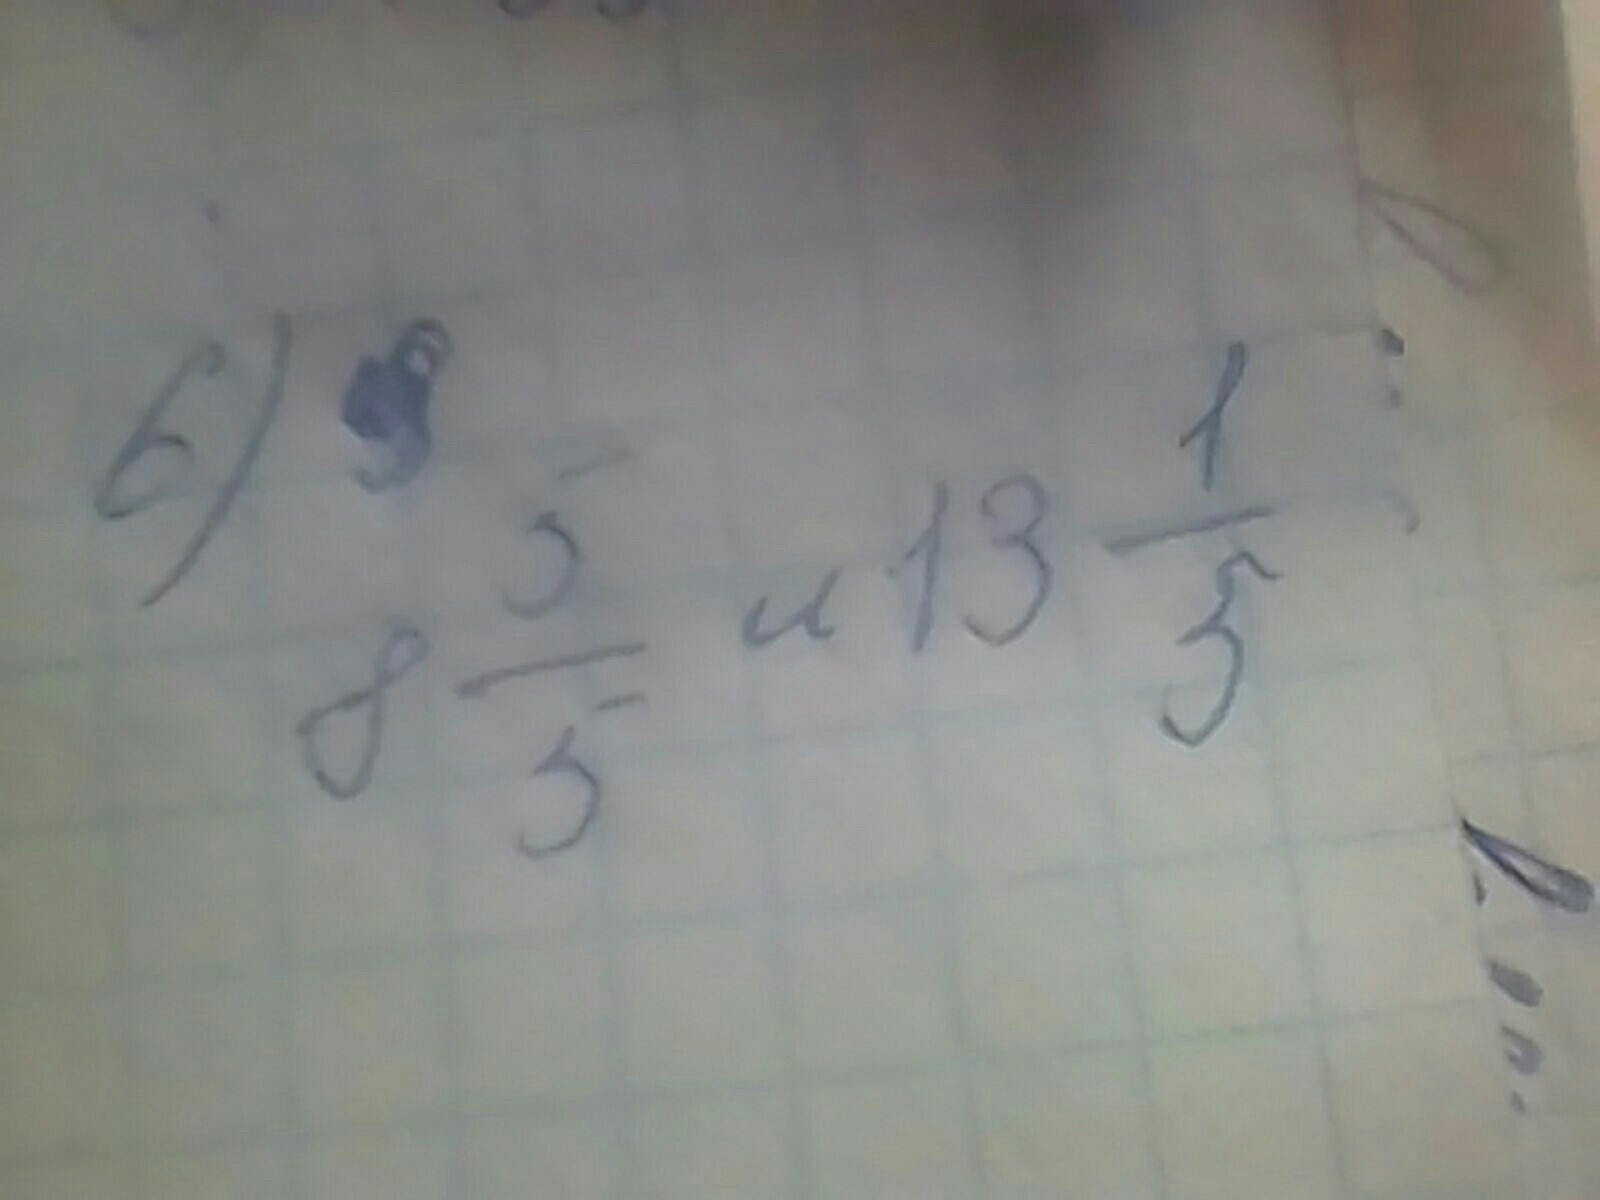 б)
8 5/5 и 13 1/5